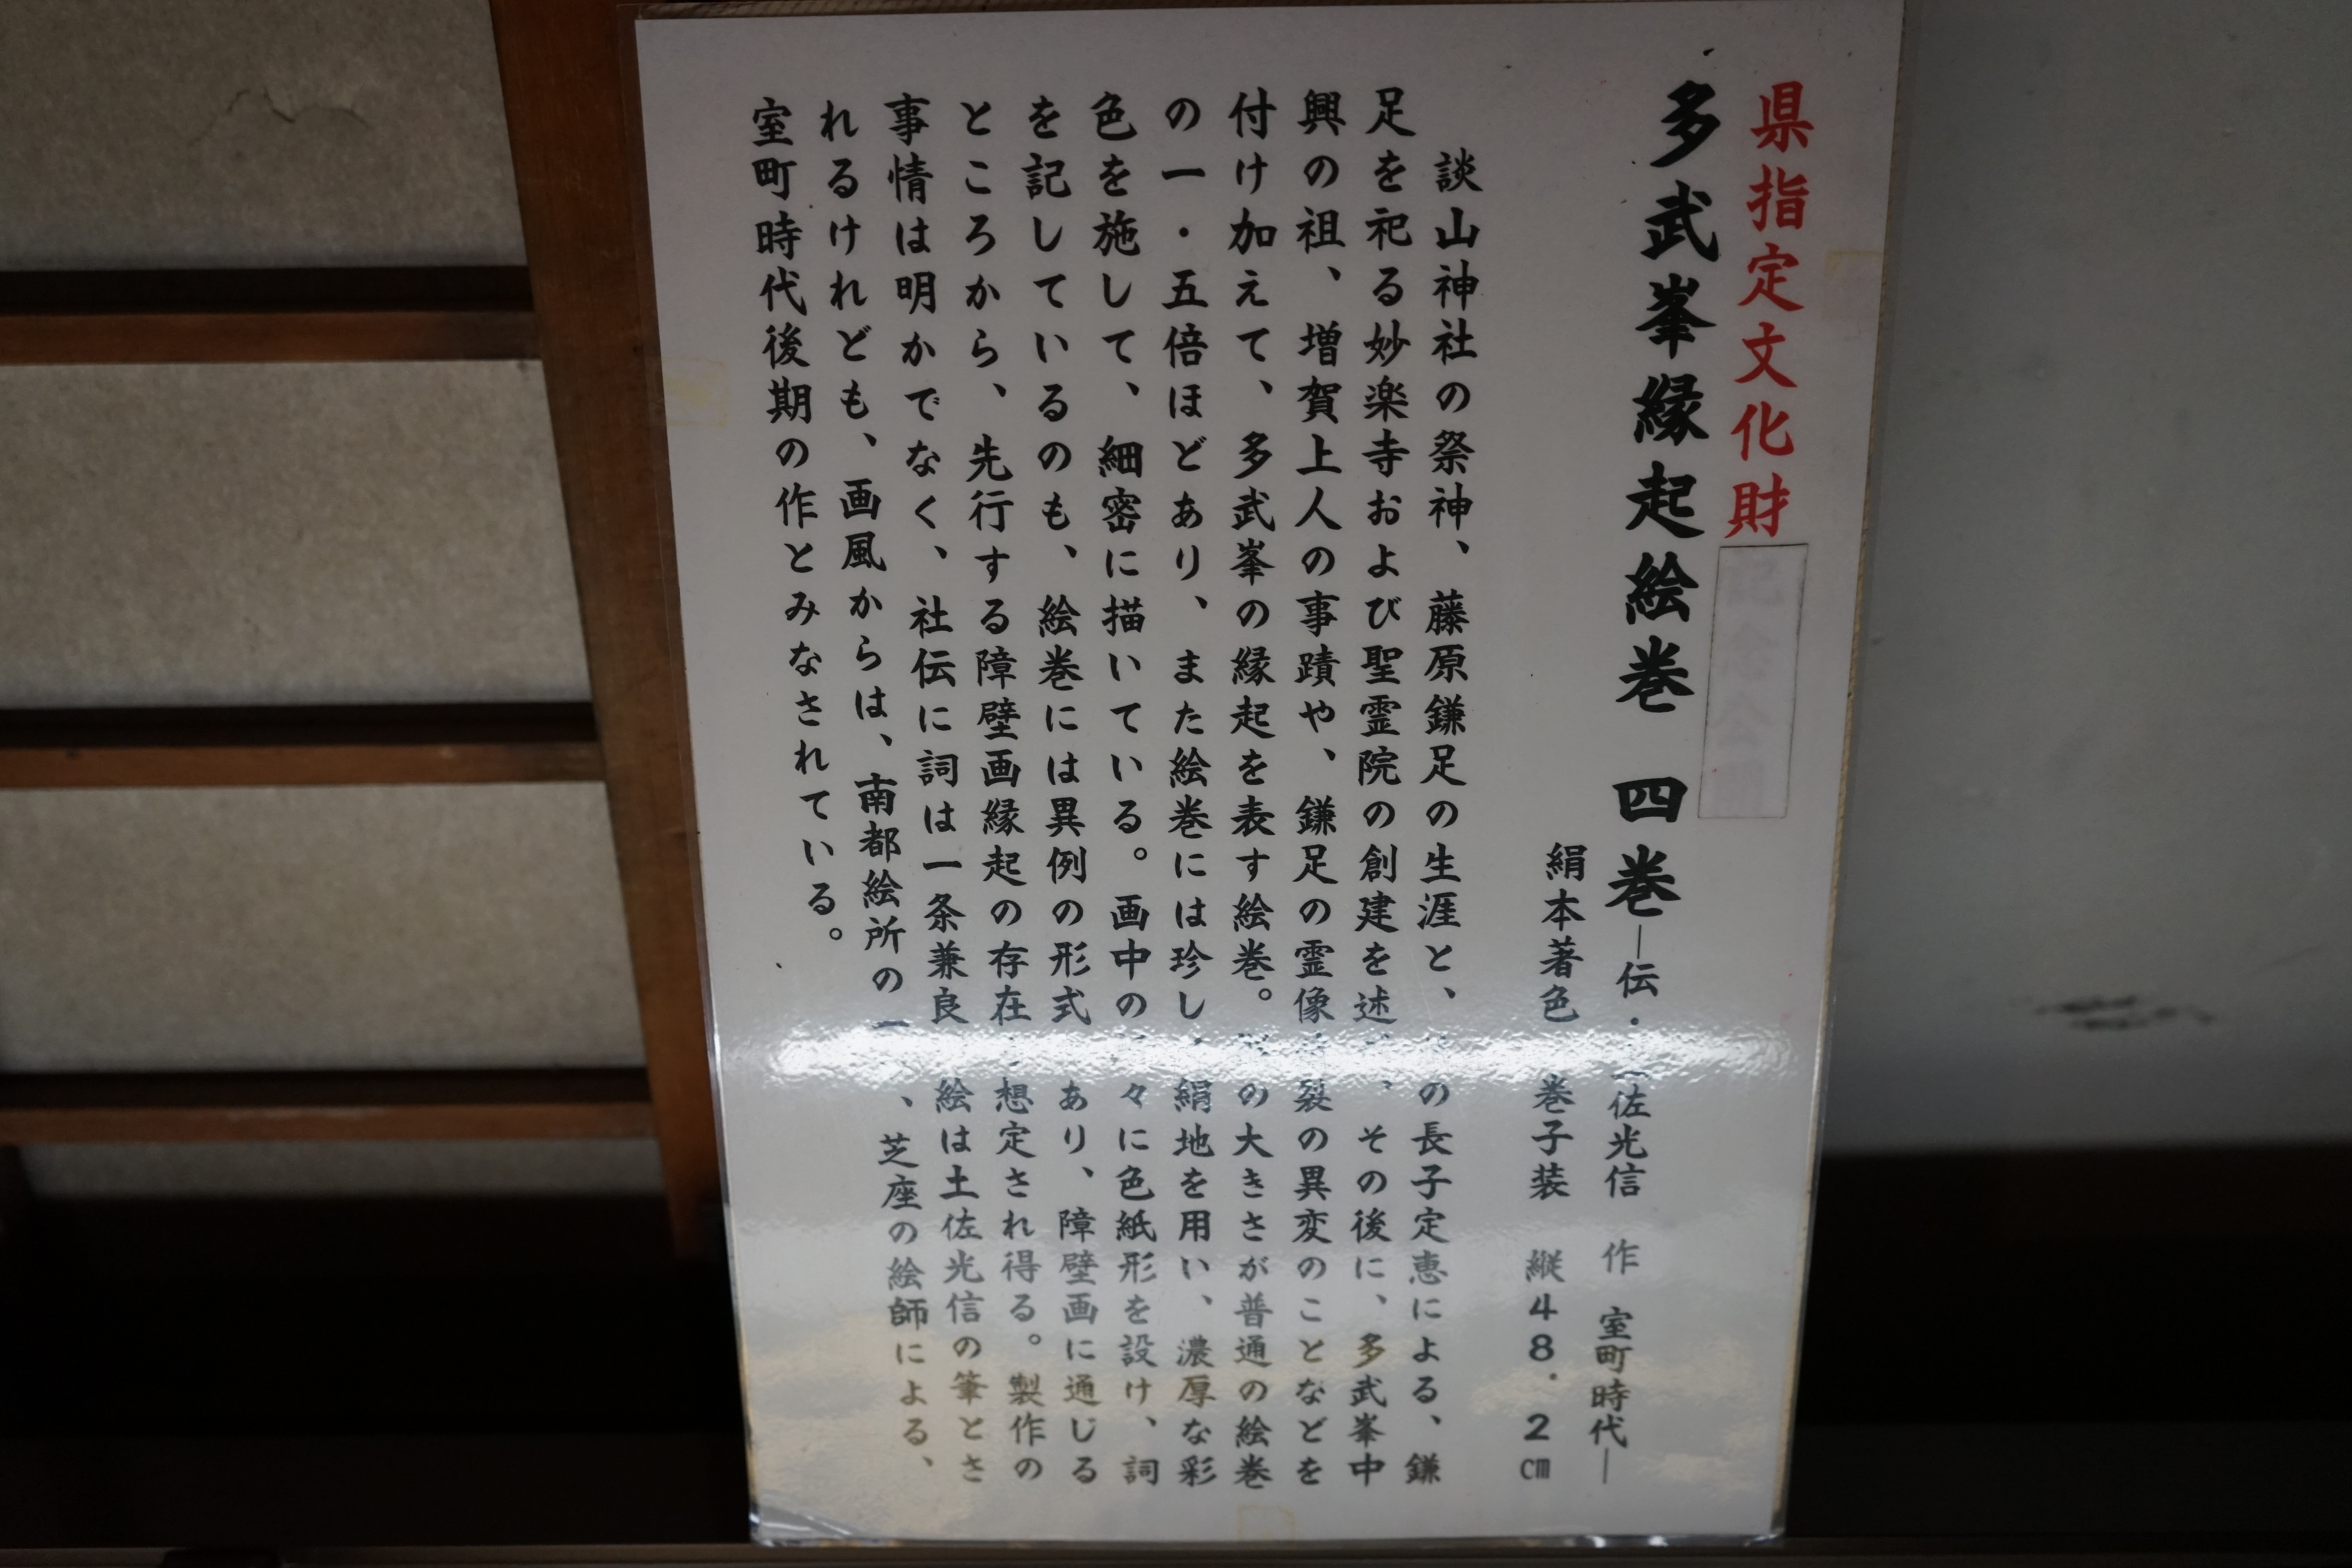 県指定文化財
多武峯縁起絵巻 四巻―伝・佐光信 作 室町時代―
絹本著色 巻子装 縦48.2㎝
談山神社の祭神、藤原鎌足の生涯と、の長子定恵による、鎌
足を祀る妙楽寺および聖霊院の創建を述、その後に、多武峯中
興の祖、増賀上人の事蹟や、鎌足の霊像裂の異変のことなどを
付け加えて、多武峯の縁起を表す絵巻。の大きさが普通の絵巻
の一・五倍ほどあり、また絵巻には珍し絹地を用い、濃厚な彩
色を施して、細密に描いている。画中の々に色紙形を設け、詞
を記しているのも、絵巻には異例の形式あり、障壁画に通じる
ところから、先行する障壁画縁起の存在想定され得る。製作の
事情は明かでなく、社伝に詞は一条兼良絵は土佐光信の筆とさ
れるけれども、画風からは、南都絵所の一、芝座の絵師による、
室町時代後期の作とみなされている。